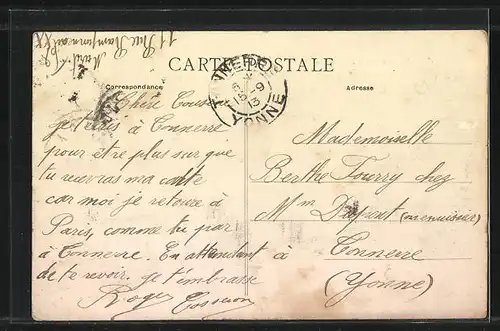 11 Rue
CARTE POSTALE
TONNERRE
15-9
13
YONNE
Correspondance
Adresse
Chère Cousine
je t'écris à Tonnerre
pour être plus sur que
tu recevras ma carte
car moi je retourne à
Paris, comme tu pars
à Tonnerre. En attendant
de te revoir. je t'embrasse
Roger Cosson
Mademoiselle
Berthe Fourry chez
Mm Dupont (menuisier)
à Tonnerre
(Yonne)